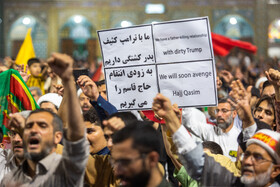 ما با ترامپ کثیف
پدر کشتگی داریم
به زودی انتقام
حاج قاسم را
می گیریم
We have a father-killing relationship
with dirty Trump
We will soon avenge
Hajj Qasim